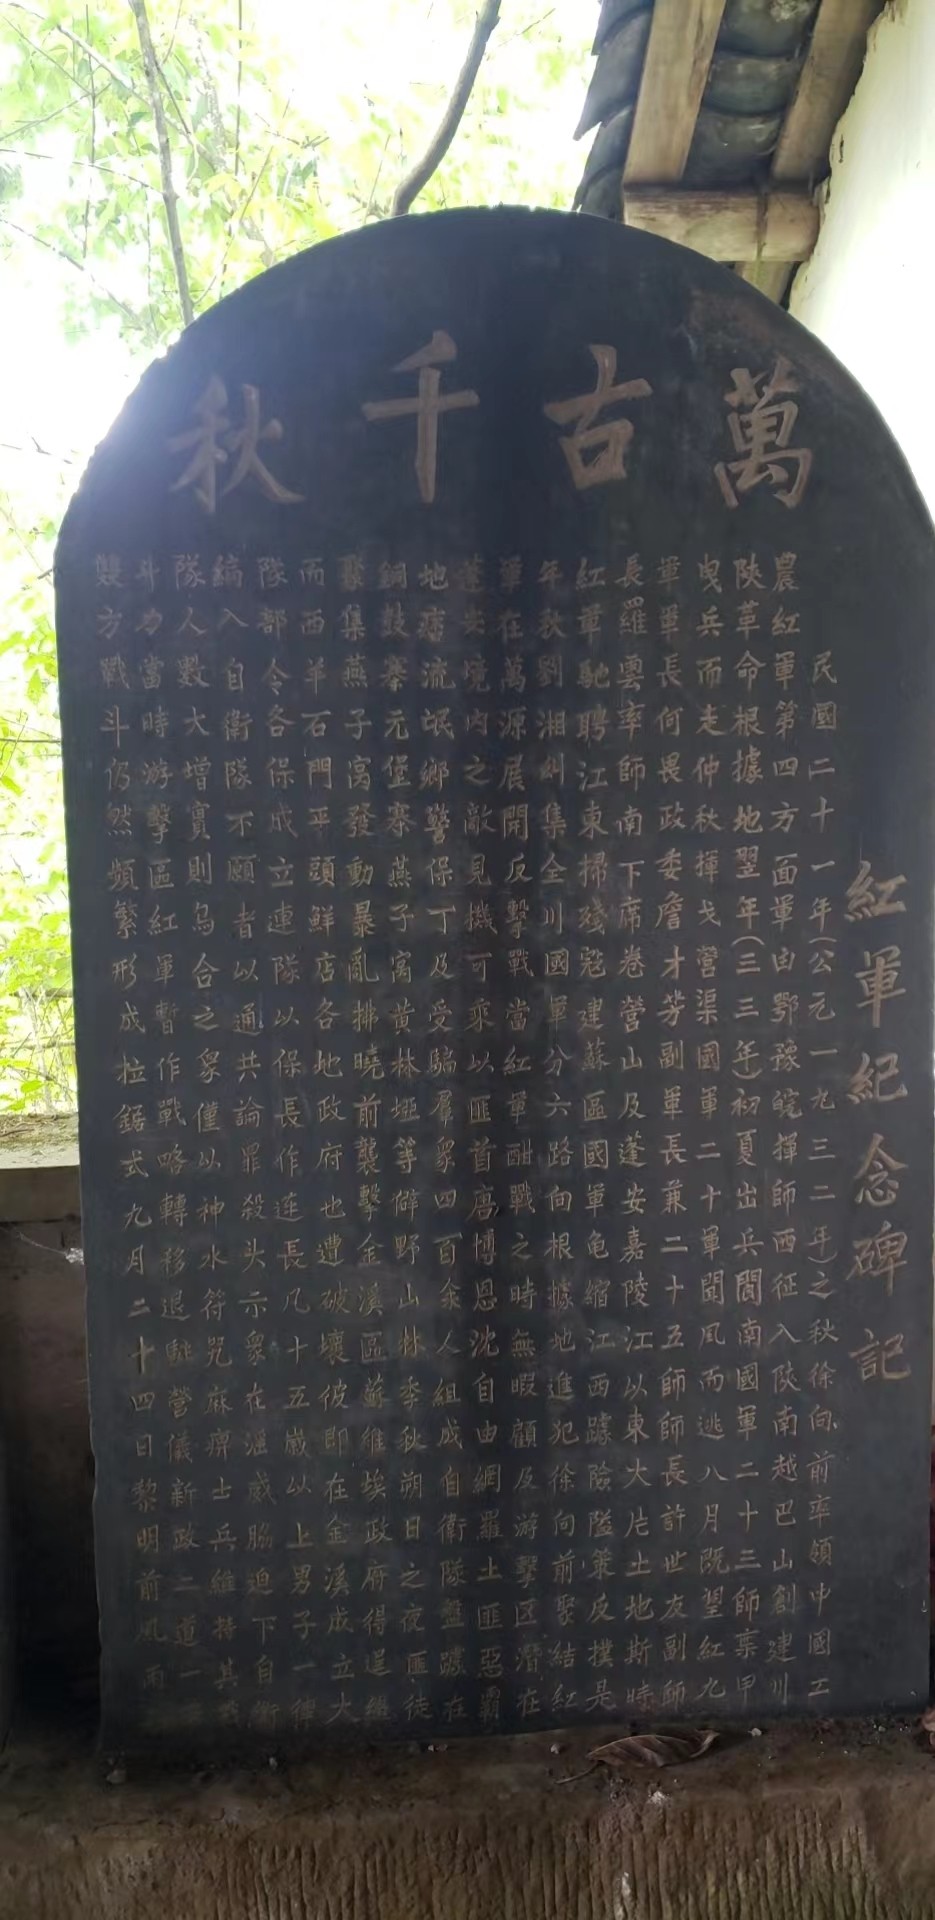 萬古千秋
紅軍紀念碑記
民國二十一年(公元一九三二年)之秋徐向前率領中國工
農紅軍第四方面軍由鄂豫皖揮師西征入陝南越巴山創建川
陝革命根據地翌年(三三年)初夏出兵閬南國軍二十三師棄甲
曳兵而走仲秋揮戈營渠國軍二十軍聞風而逃八月既望紅九
軍軍長何畏政委詹才芳副軍長兼二十五師師長許世友副師
長羅雲率師南下席卷營山及蓬安嘉陵江以東大片土地斯時
紅軍馳聘江東掃殘寇建蘇區國軍龟縮江西踞險隘策反撲是
年秋劉湘糾集全川國軍分六路向根據地進犯徐向前聚結紅
軍在萬源展開反擊戰當紅軍酣戰之時無暇顧及游擊区潛在
蓬安境内之敵見機可乘以匪首唐博恩沈自由網羅土匪惡霸
地痞流氓鄉警保丁及受騙羣眾四百余人組成自衛隊盤踞在
銅鼓寨元堡寨燕子窩黄林埡等僻野山林季秋朔日之夜匪徒
聚集燕子窩發動暴亂拂曉前襲擊金溪區蘇維埃政府得逞繼
而西羊石門平頭鮮店各地政府也遭破壞彼即在金溪成立大
隊部令各保成立連隊以保長作连長凡十五歲以上男子一律
編入自衛隊不願者以通共論罪殺头示眾在淫威脇迫下自衛
隊人數大增實則烏合之眾僅以神水符咒麻痹士兵維持其
斗力當時游擊區紅軍暫作戰略轉移退駐營儀新政二道一
雙方戰斗仍然頻繁形成拉鋸式九月二十四日黎明前風雨